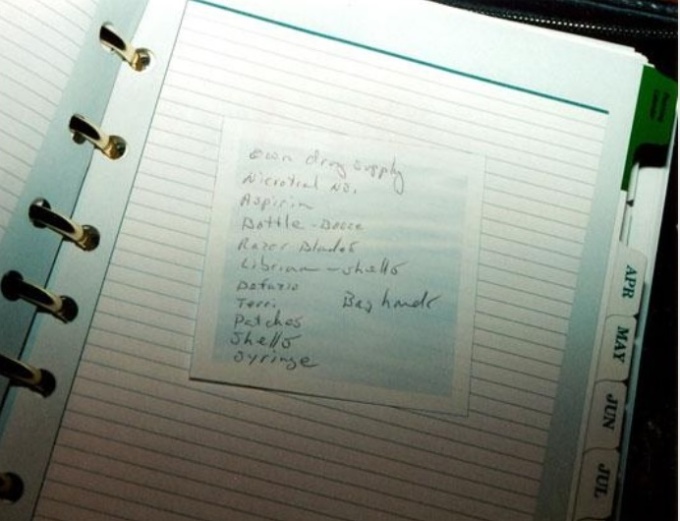 own drug supply
Aspirin
Bottle - Booze
Razor Blades
Librium - shells
Terri Bag hands
Patches
Shells
Syringe
APR
MAY
JUN
JUL